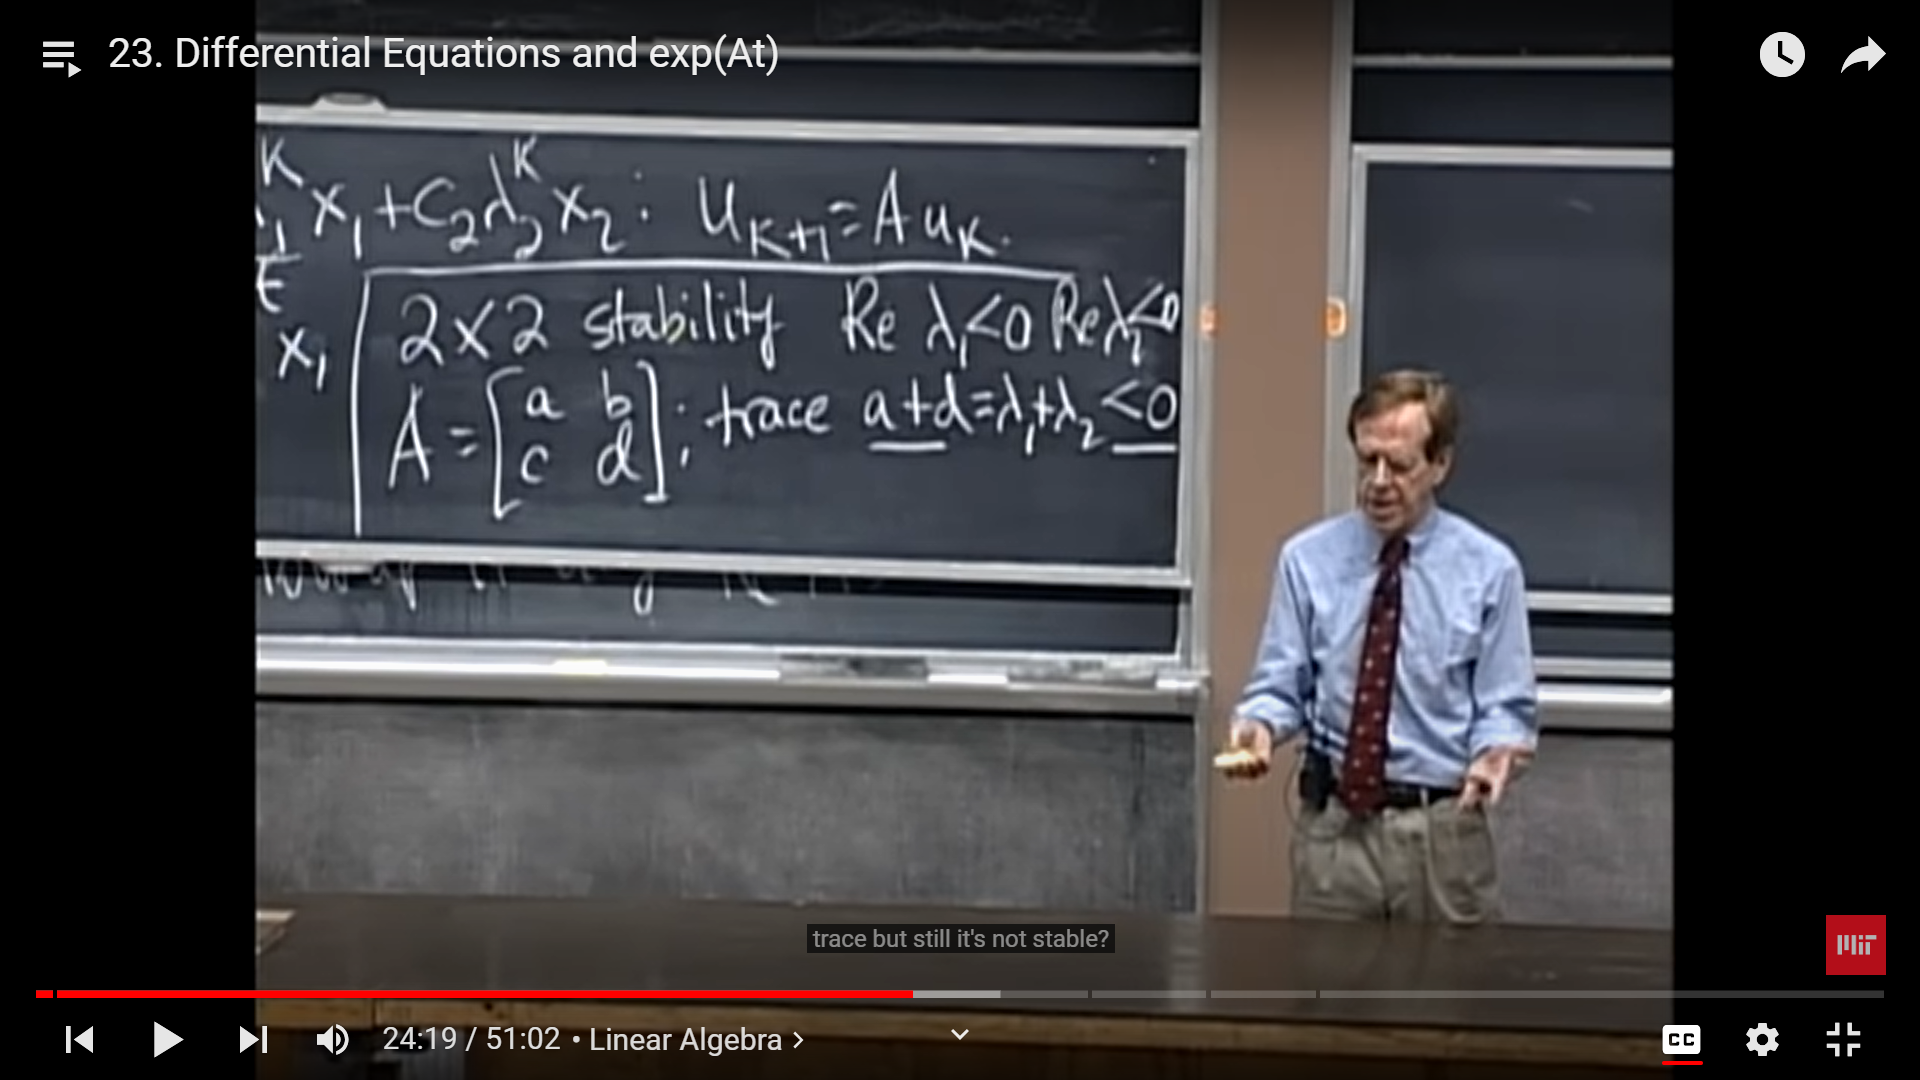 23. Differential Equations and exp(At)
K x₁ + C₂ λ₂ᴷ x₂ : u_{K+1} = A u_K.
x₁
2x2 stability Re λ₁<0 Re λ₂<0
A = [a b; trace a+d=λ₁+λ₂ <0
c d]
trace but still it's not stable?
MIT
24:19 / 51:02 • Linear Algebra >
CC